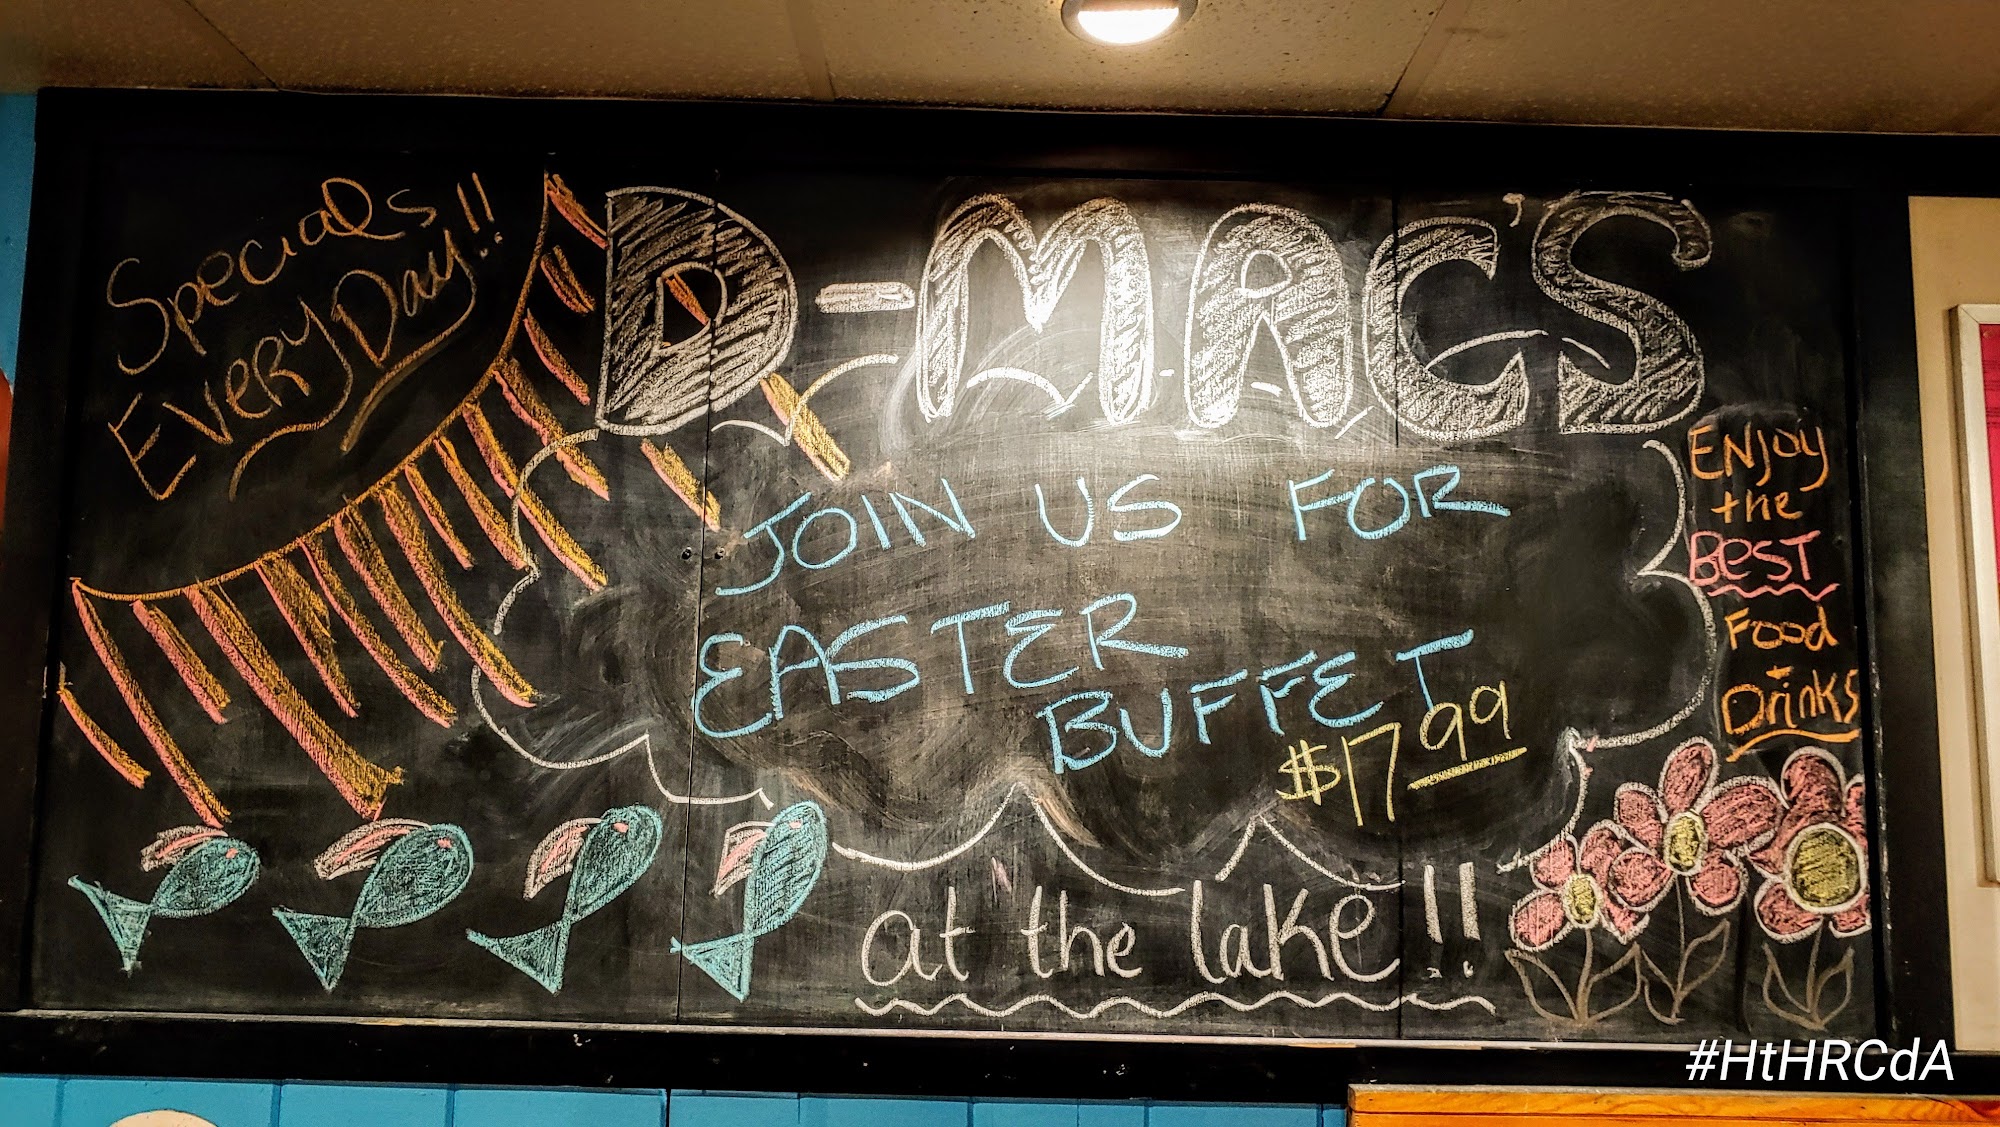 Specials
Every Day!!
D-MAC'S
JOIN US FOR
EASTER
BUFFET
$17.99
at the lake!!
ENJoy
the
BeST
Food
+
Drinks
#HtHRCdA